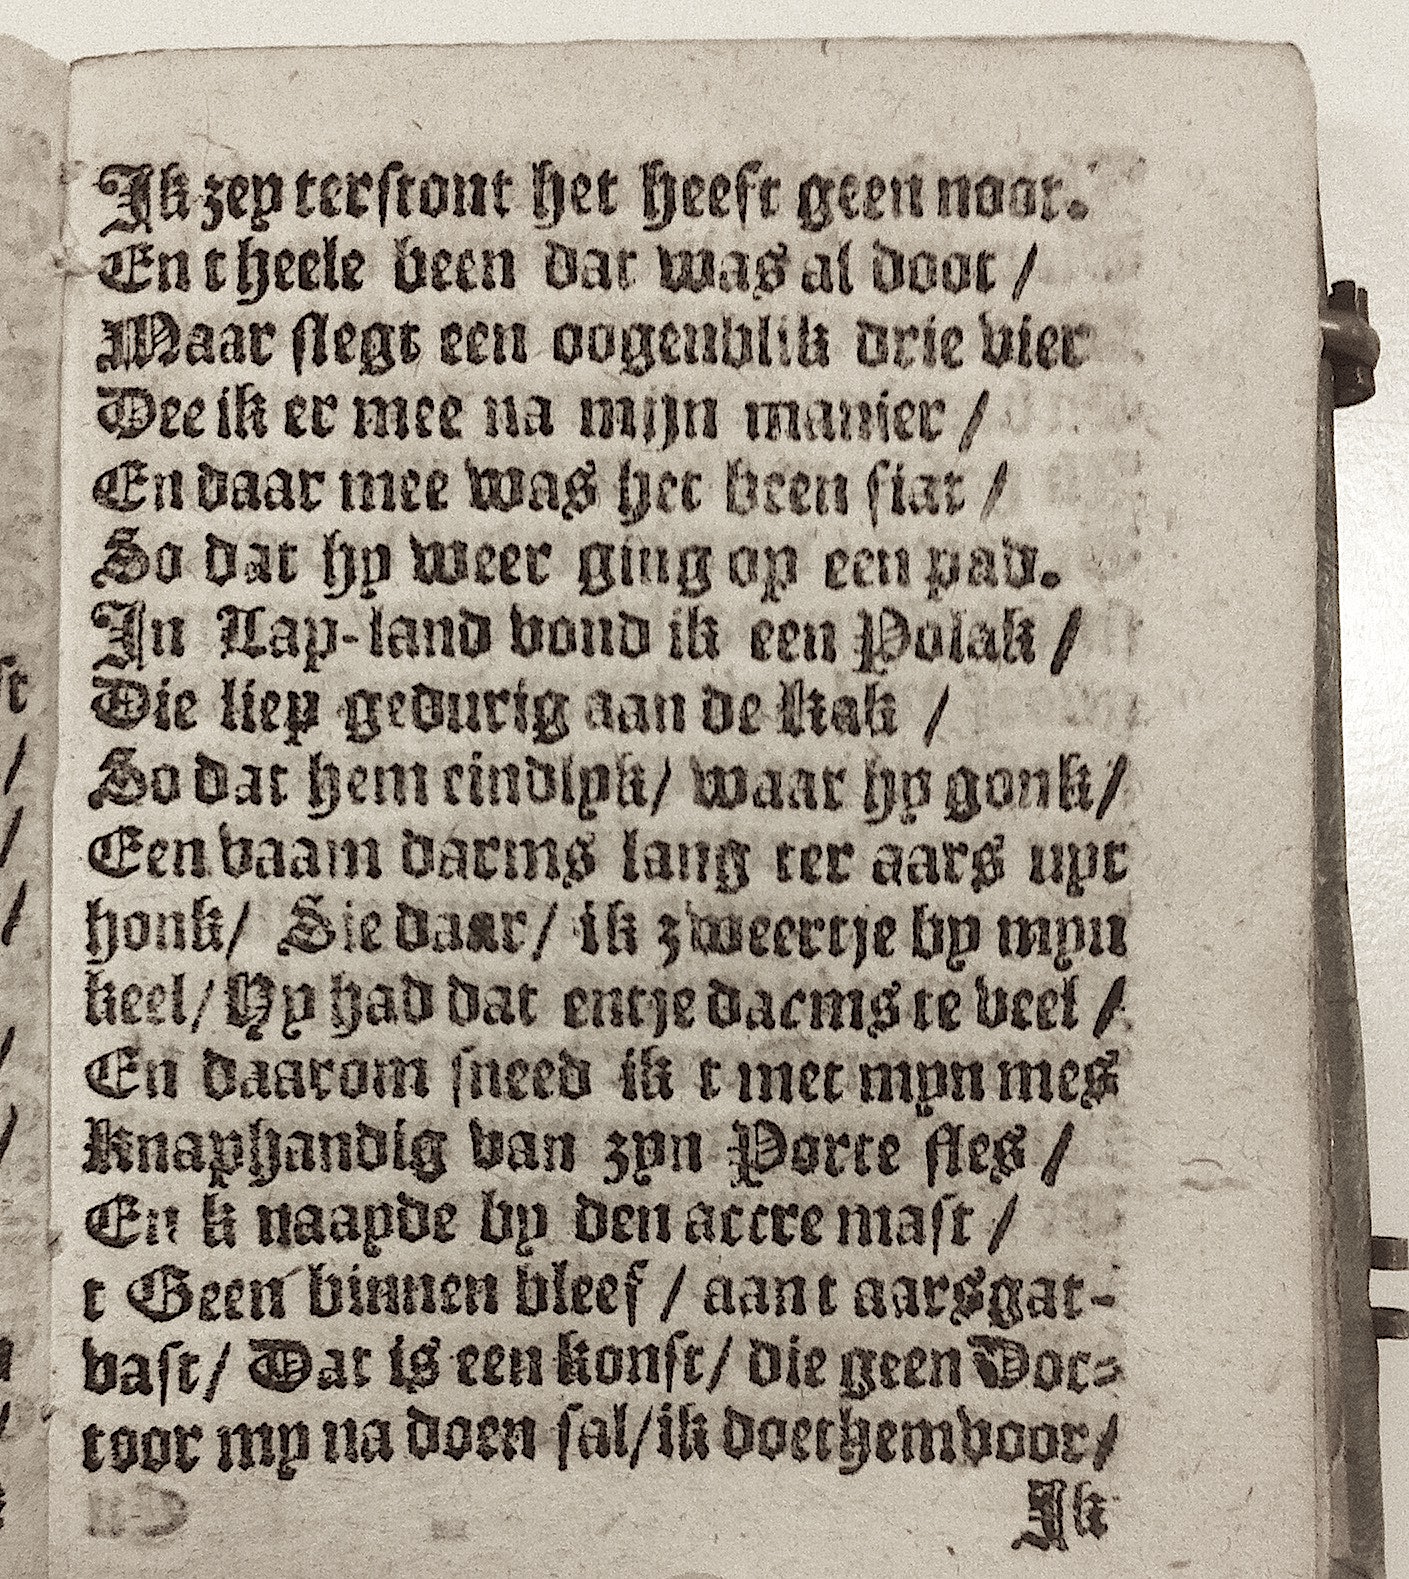 Ik zey terstont het heeft geen noot.
En t heele been dat was al doot /
Maar slegt een oogenblik drie vier
Dee ik er mee na mijn manier /
En daar mee was het been fiat /
So dat hy weer ging op een pad.
In Lap-land vond ik een Polak /
Die liep gedurig aan de kak /
So dat hem eindlyk / waar hy gonk /
Een vaam darms lang ter aars uyt
honk / Sie daar / ik zweertje by myn
keel / Hy had dat entje darms te veel /
En daarom sneed ik t met myn mes
Knaphandig van zyn Porte fles /
En k naayde by den accre mast /
t Geen binnen bleef / aan t aarsgat-
vast / Dat is een konst / die geen Doc-
toor my na doen sal / ik doet hem voor /
Ik